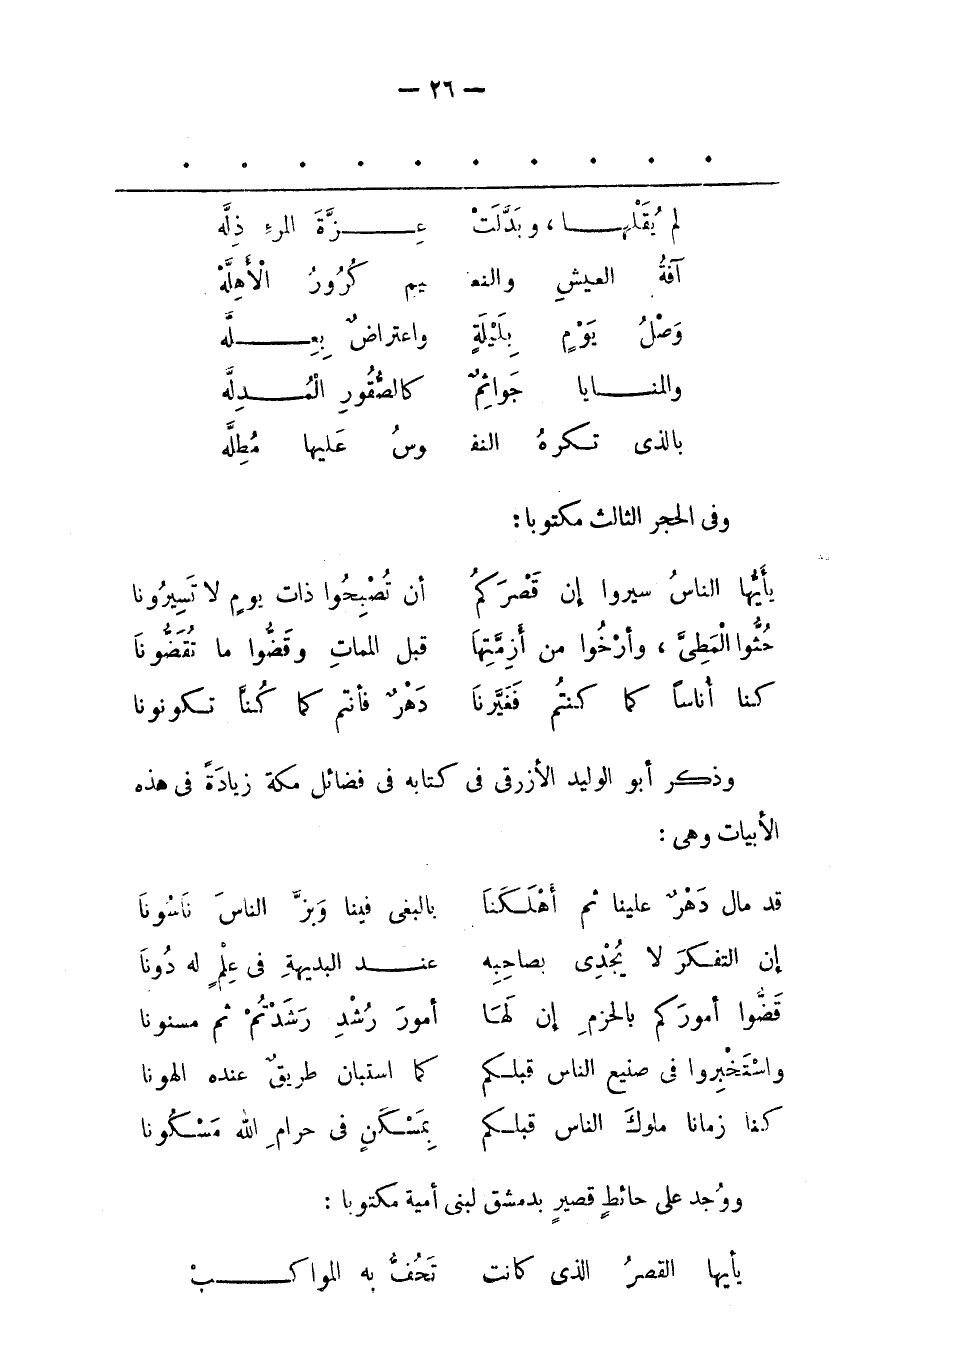 — ٢٦ —
. . . . . . . . . .
لم يُقَلْهِا، وبَدَّلَتْ عِزَّةَ المرءِ ذِلَّه
آفةُ العيشِ والنعـ ـيم كُرُورُ الْأَهِلَّهْ
وَصْلُ يَوْمٍ بِلَيْلَةٍ واعتراضٌ بِعِلَّه
والمنايا جَواثِمٌ كالصُّقُورِ الْمُدِلَّه
بالذى تكرهُ النفـ ـوسُ عَليها مُطِلَّه
وفى الحجر الثالث مكتوبا:
يأَيُّها الناسُ سيروا إن قَصْرَكُمُ أن تُصْبِحُوا ذات يومٍ لا تَسِيرُونا
حُثُّوا الْمَطِىَّ، وأرْخُوا من أَزِمَّتِهاَ قبل المماتِ وقَضُّوا ما تُقَضُّوناَ
كنا أُناساً كما كنتُم فَغَيَّرنَا دَهْرٌ فأنتم كما كُنَّا تكونونا
وذكر أبو الوليد الأزرقى فى كتابه فى فضائل مكة زيادَةً فى هذه
الأبيات وهى:
قد مال دَهْرٌ علينا ثم أَهْلَكَنَا بالبغى فينا وَبزَّ الناسَ نَاسُونَا
إن التفكرَ لا يُجْدِى بصاحِبِه عند البديهةِ فى عِلْمٍ له دُوناَ
قَضُّوا أمورَكم بالحزمِ إن لَهَا أمورَ رُشْدِ رَشَدْتُمْ ثم مسنونا
واسْتَخْبِروا فى صنيع الناس قبلكم كما استبان طريقٌ عنده الهونا
كنا زمانا ملوكَ الناس قبلكم بِمَسْكَنٍ فى حرامِ الله مَسْكُونا
ووُجد على حائطٍ قصيرٍ بدمشق لبنى أمية مكتوبا:
يأيها القصرُ الذى كانت تَحُفُّ به المواكبْ